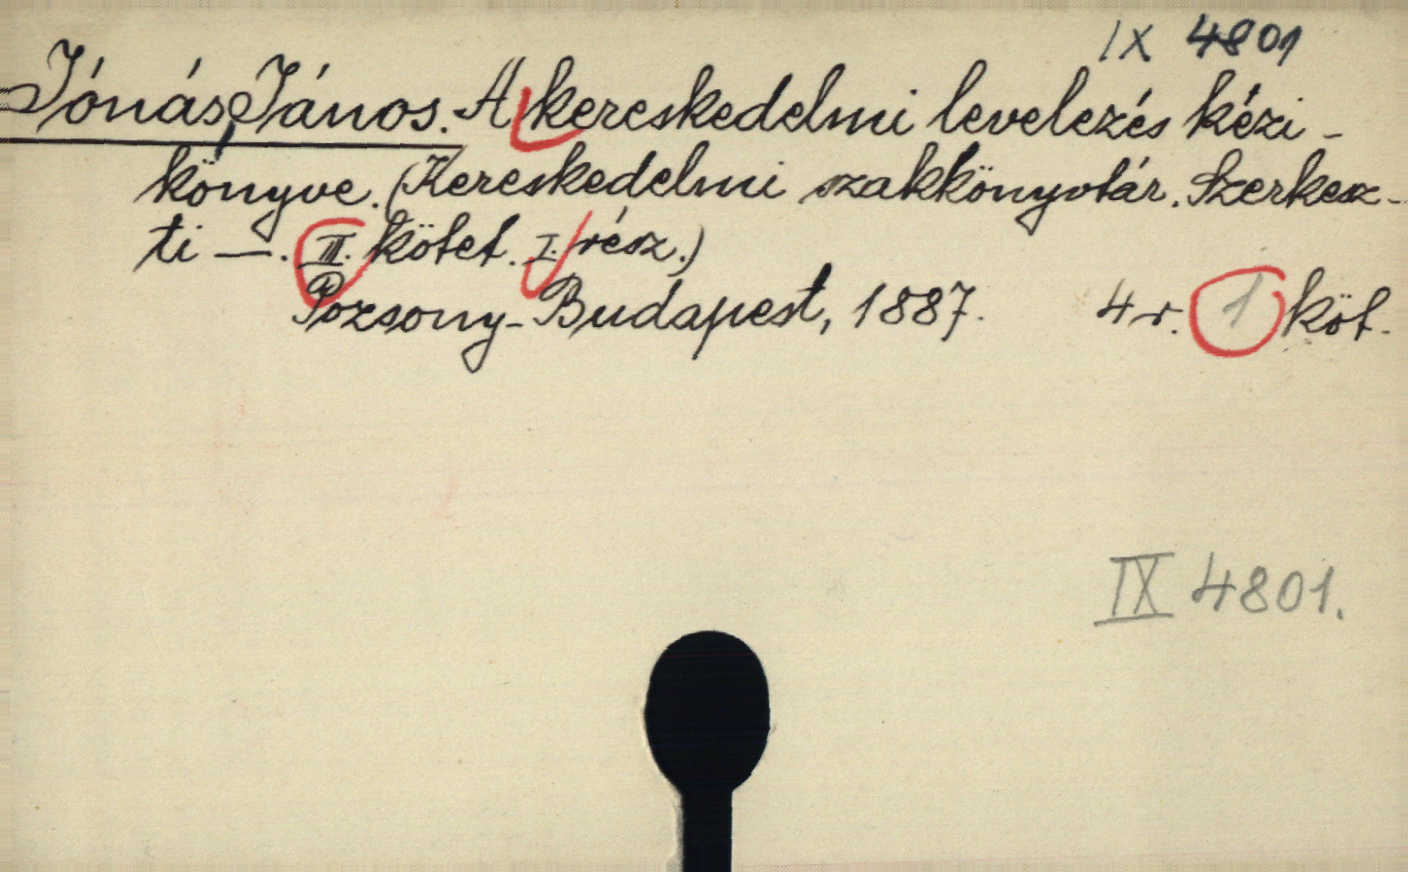 IX 4801
Jónás, János. A kereskedelmi levelezés kézi-
könyve. (Kereskedelmi szakkönyvtár. Szerkesz-
ti —. III. kötet. I. rész.)
Pozsony-Budapest, 1887. 4 r. 1 köt.
IX 4801.